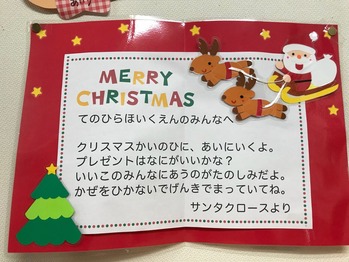 MERRY
CHRISTMAS
てのひらほいくえんのみんなへ
クリスマスかいのひに、あいにいくよ。
プレゼントはなにがいいかな？
いいこのみんなにあうのがたのしみだよ。
かぜをひかないでげんきでまっていてね。
サンタクロースより